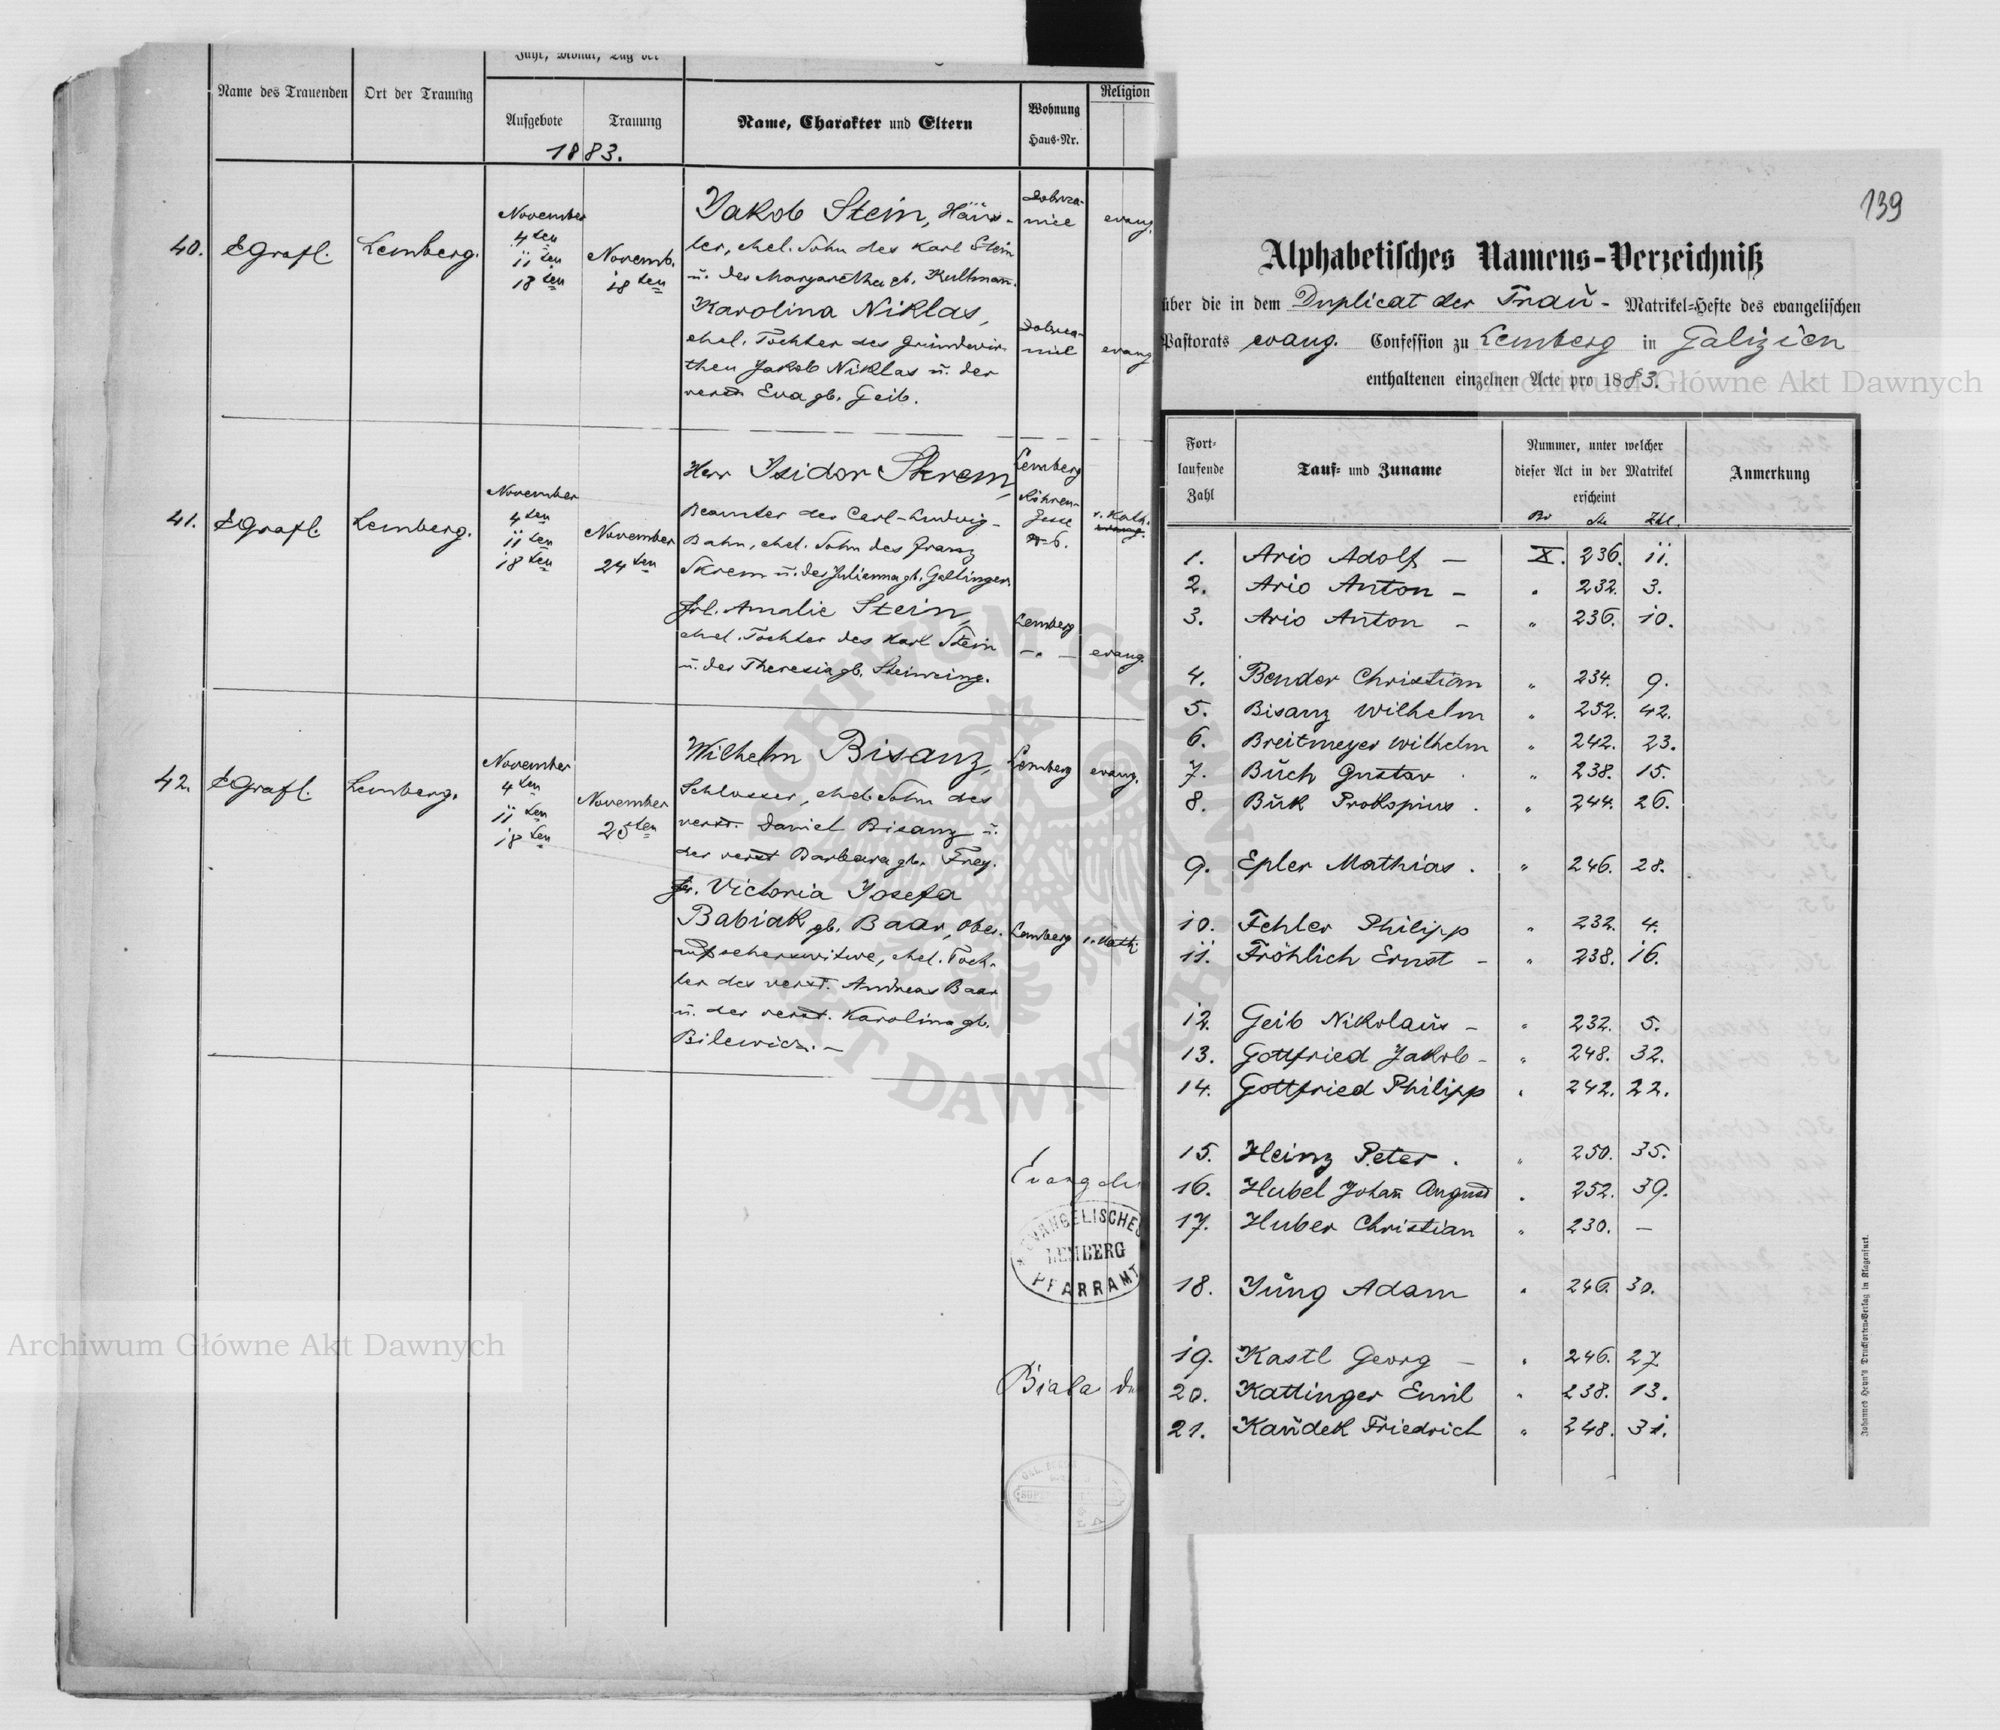 Name des Trauenden
Ort der Trauung
Jahr, Monat, Tag der
Aufgebote
Trauung
1883.
Name, Charakter und Eltern
Wohnung
Haus-Nr.
Religion
40.
EGrafl.
Lemberg.
November
4ten
11ten
18ten
Novemb.
18ten
Jakob Stein, Häus-
ler, ehel. Sohn des Karl Stein
u. der Margaretha gb. Kullmann.
Karolina Niklas,
ehel. Tochter des Grundwir-
then Jakob Niklas u. der
verst Eva gb. Geib.
Dobrza-
nice
evang.
evang
41.
EGrafl.
Lemberg.
November
4ten
11ten
18ten
November
24ten
Herr Isidor Skrem,
Beamter der Carl-Ludwig-
Bahn, ehel. Sohn des Franz
Skrem u. der Julianna gb. Gellinger.
Frl. Amalie Stein,
ehel. Tochter des Karl Stein
u. der Theresia gb. Steinreing.
Lemberg
N-6.
r. Kath.
evang.
Lemberg
evang.
42.
EGrafl.
Lemberg.
November
4ten
11ten
18ten
November
25ten
Wilhelm Bisanz,
Schlosser, ehel. Sohn des
verst. Daniel Bisanz u.
der verst Barbara gb. Frey.
Fr. Victoria Josefa
Babiak gb. Baar, Ober-
aufseherswitwe, ehel. Toch-
ter des verst. Andreas Baar
u. der verst. Karolina gb.
Bilewicz. —
Lemberg
evang.
Lemberg
r. Kath.
Evangeli
EVANGELISCHES
LEMBERG
PFARRAMT
Biala
139
Alphabetisches Namens-Verzeichniß
über die in dem Duplicat der Trau- Matrikel-Hefte des evangelischen
Pastorats evang. Confession zu Lemberg in Galizien
enthaltenen einzelnen Acte pro 1883.
Fort-
laufende
Zahl
Tauf- und Zuname
Nummer, unter welcher
dieser Act in der Matrikel
erscheint
Anmerkung
Bd Ste Zhl.
1. Ario Adolf — X. 236. 11.
2. Ario Anton - " 232. 3.
3. Ario Anton - " 236. 10.
4. Bender Christian " 234. 9.
5. Bisanz Wilhelm " 252. 42.
6. Breitmeyer Wilhelm " 242. 23.
7. Buch Gustav . " 238. 15.
8. Buk Prokopius . " 244. 26.
9. Epler Mathias . " 246. 28.
10. Fehler Philipp " 232. 4.
11. Fröhlich Ernst - " 238. 16.
12. Geib Nikolaus - " 232. 5.
13. Gottfried Jakob - " 248. 32.
14. Gottfried Philipp " 242. 22.
15. Heinz Peter . " 250. 35.
16. Hubel Johann August " 252. 39.
17. Huber Christian " 230. —
18. Jung Adam " 246. 30.
19. Kastl Georg — " 246. 27
20. Kattinger Emil " 238. 13.
21. Kaudek Friedrich " 248. 31.
Johannes Heyn's Drucksorten-Verlag in Klagenfurt.
Archiwum Główne Akt Dawnych
Archiwum Główne Akt Dawnych
ARCHIWUM GŁÓWNE AKT DAWNYCH